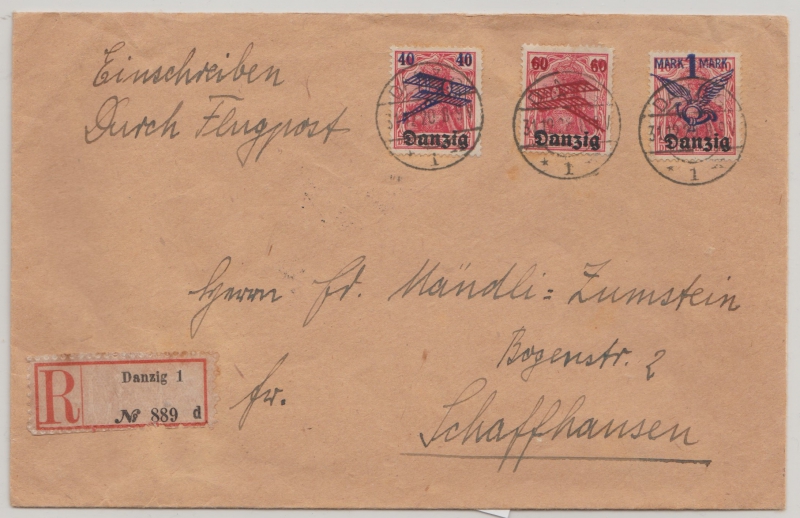 Einschreiben
Durch Flugpost
40 40
Danzig
60 60
Danzig
MARK 1 MARK
Danzig
* 1 *
* 1 *
* 1 *
Herrn Fd. Mändli=Zumstein
Bogenstr. 2
fr.
Schaffhausen
R
Danzig 1
№ 889 d